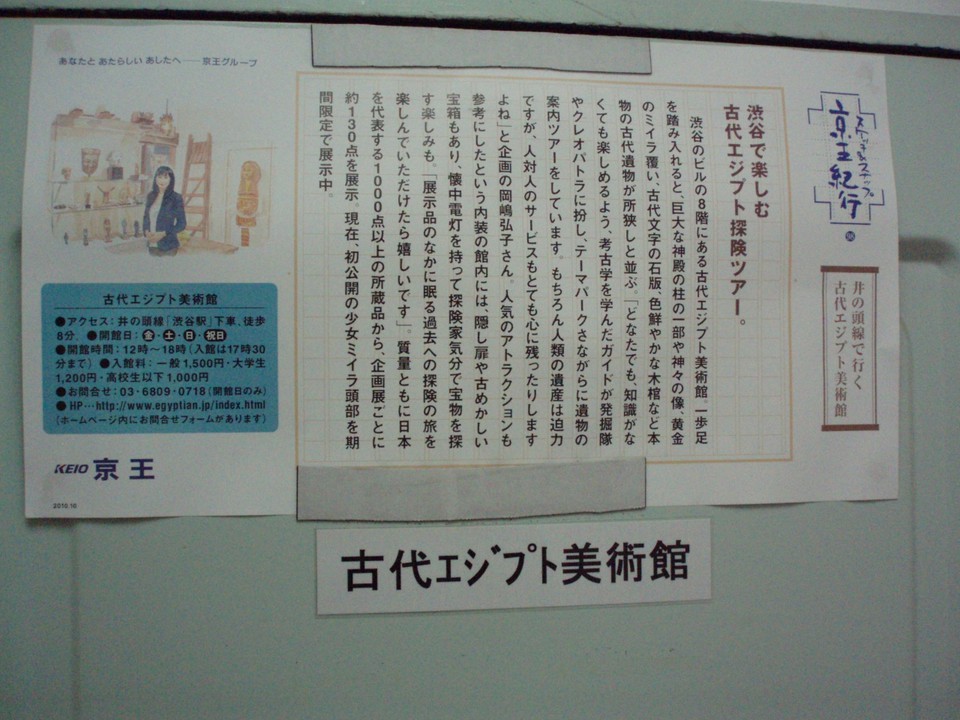 あなたと あたらしい あしたへ──京王グループ
スケッチ&スナップ
京王紀行
96
井の頭線で行く
古代エジプト美術館
渋谷で楽しむ
古代エジプト探険ツアー。
渋谷のビルの8階にある古代エジプト美術館。一歩足
を踏み入れると、巨大な神殿の柱の一部や神々の像、黄金
のミイラ覆い、古代文字の石版、色鮮やかな木棺など本
物の古代遺物が所狭しと並ぶ。「どなたでも、知識がな
くても楽しめるよう、考古学を学んだガイドが発掘隊
やクレオパトラに扮し、テーマパークさながらに遺物の
案内ツアーをしています。もちろん人類の遺産は迫力
ですが、人対人のサービスもとても心に残ったりします
よね」と企画の岡嶋弘子さん。人気のアトラクションも
参考にしたという内装の館内には、隠し扉や古めかしい
宝箱もあり、懐中電灯を持って探険家気分で宝物を探
す楽しみも。「展示品のなかに眠る過去への探険の旅を
楽しんでいただけたら嬉しいです」。質量ともに日本
を代表する1000点以上の所蔵品から、企画展ごとに
約130点を展示。現在、初公開の少女ミイラ頭部を期
間限定で展示中。
古代エジプト美術館
●アクセス:井の頭線「渋谷駅」下車、徒歩
8分 ●開館日:金・土・日・祝日
●開館時間:12時〜18時(入館は17時30
分まで) ●入館料:一般1,500円・大学生
1,200円・高校生以下1,000円
●お問合せ:03・6809・0718(開館日のみ)
●HP…http://www.egyptian.jp/index.html
(ホームページ内にお問合せフォームがあります)
KEIO 京王
2016.16
古代エジプト美術館